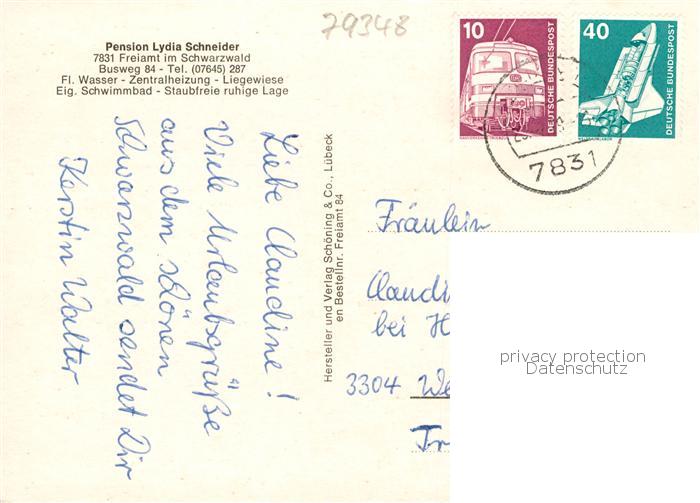 79348
Pension Lydia Schneider
7831 Freiamt im Schwarzwald
Busweg 84 - Tel. (07645) 287
Fl. Wasser - Zentralheizung - Liegewiese
Eig. Schwimmbad - Staubfreie ruhige Lage
Liebe Claudine!
Viele Urlaubsgrüße
aus dem schönen
Schwarzwald sendet Dir
Kerstin Walter
Hersteller und Verlag Schöning & Co., Lübeck
en Bestellnr. Freiamt 84
10
DEUTSCHE BUNDESPOST
40
DEUTSCHE BUNDESPOST
7831
Fräulein
Claudi
bei H
3304 We
Tr
privacy protection
Datenschutz